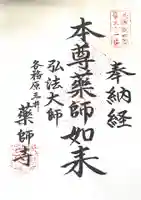 奉納経
本尊薬師如来
弘法大師
各務原三井
薬師寺